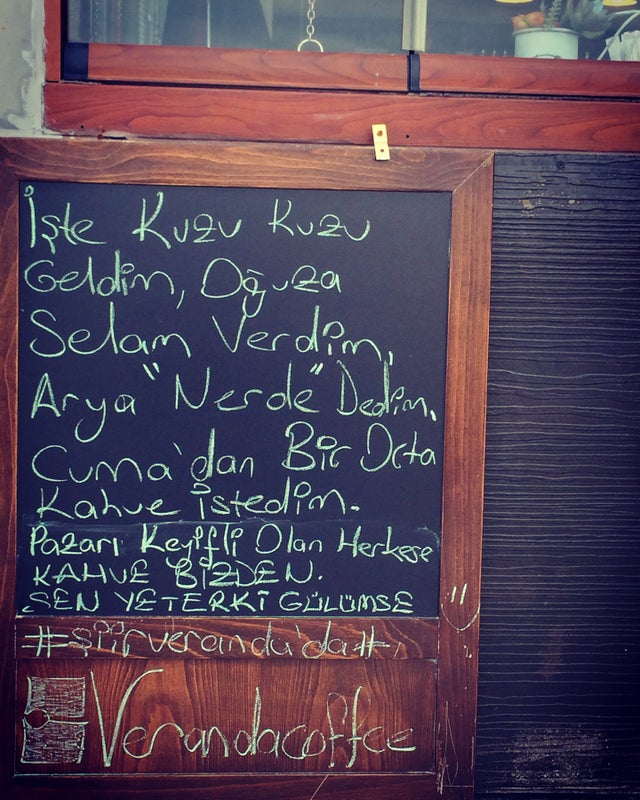 İşte Kuzu Kuzu
Geldim, Oğuza
Selam Verdim,
Arya "Nerde" Dedim.
Cuma'dan Bir Orta
Kahve istedim.
Pazarı Keyifli Olan Herkese
KAHVE BİZDEN.
SEN YETERKİ GÜLÜMSE
#şiirveranda'da#
Verandacoffee